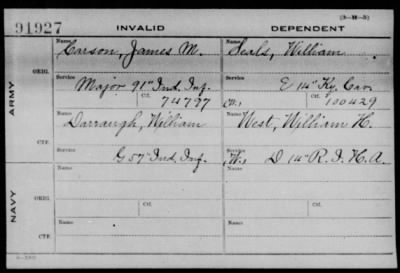 (3-M-5)
91927 INVALID DEPENDENT
Name Name
Carson, James M. Seals, William
ORIG. Service Service
Major 91" Ind. Inf. E 14" Ky. Cav.
ARMY Ctf. 74797 (W.) Ctf. 100429
Name Name
Darraugh, William West, William H.
CTF. Service Service
G 57" Ind. Inf. (W.) D 14" R. I. H. A.
Name Name
NAVY ORIG. Ctf. Ctf.
Name Name
CTF.